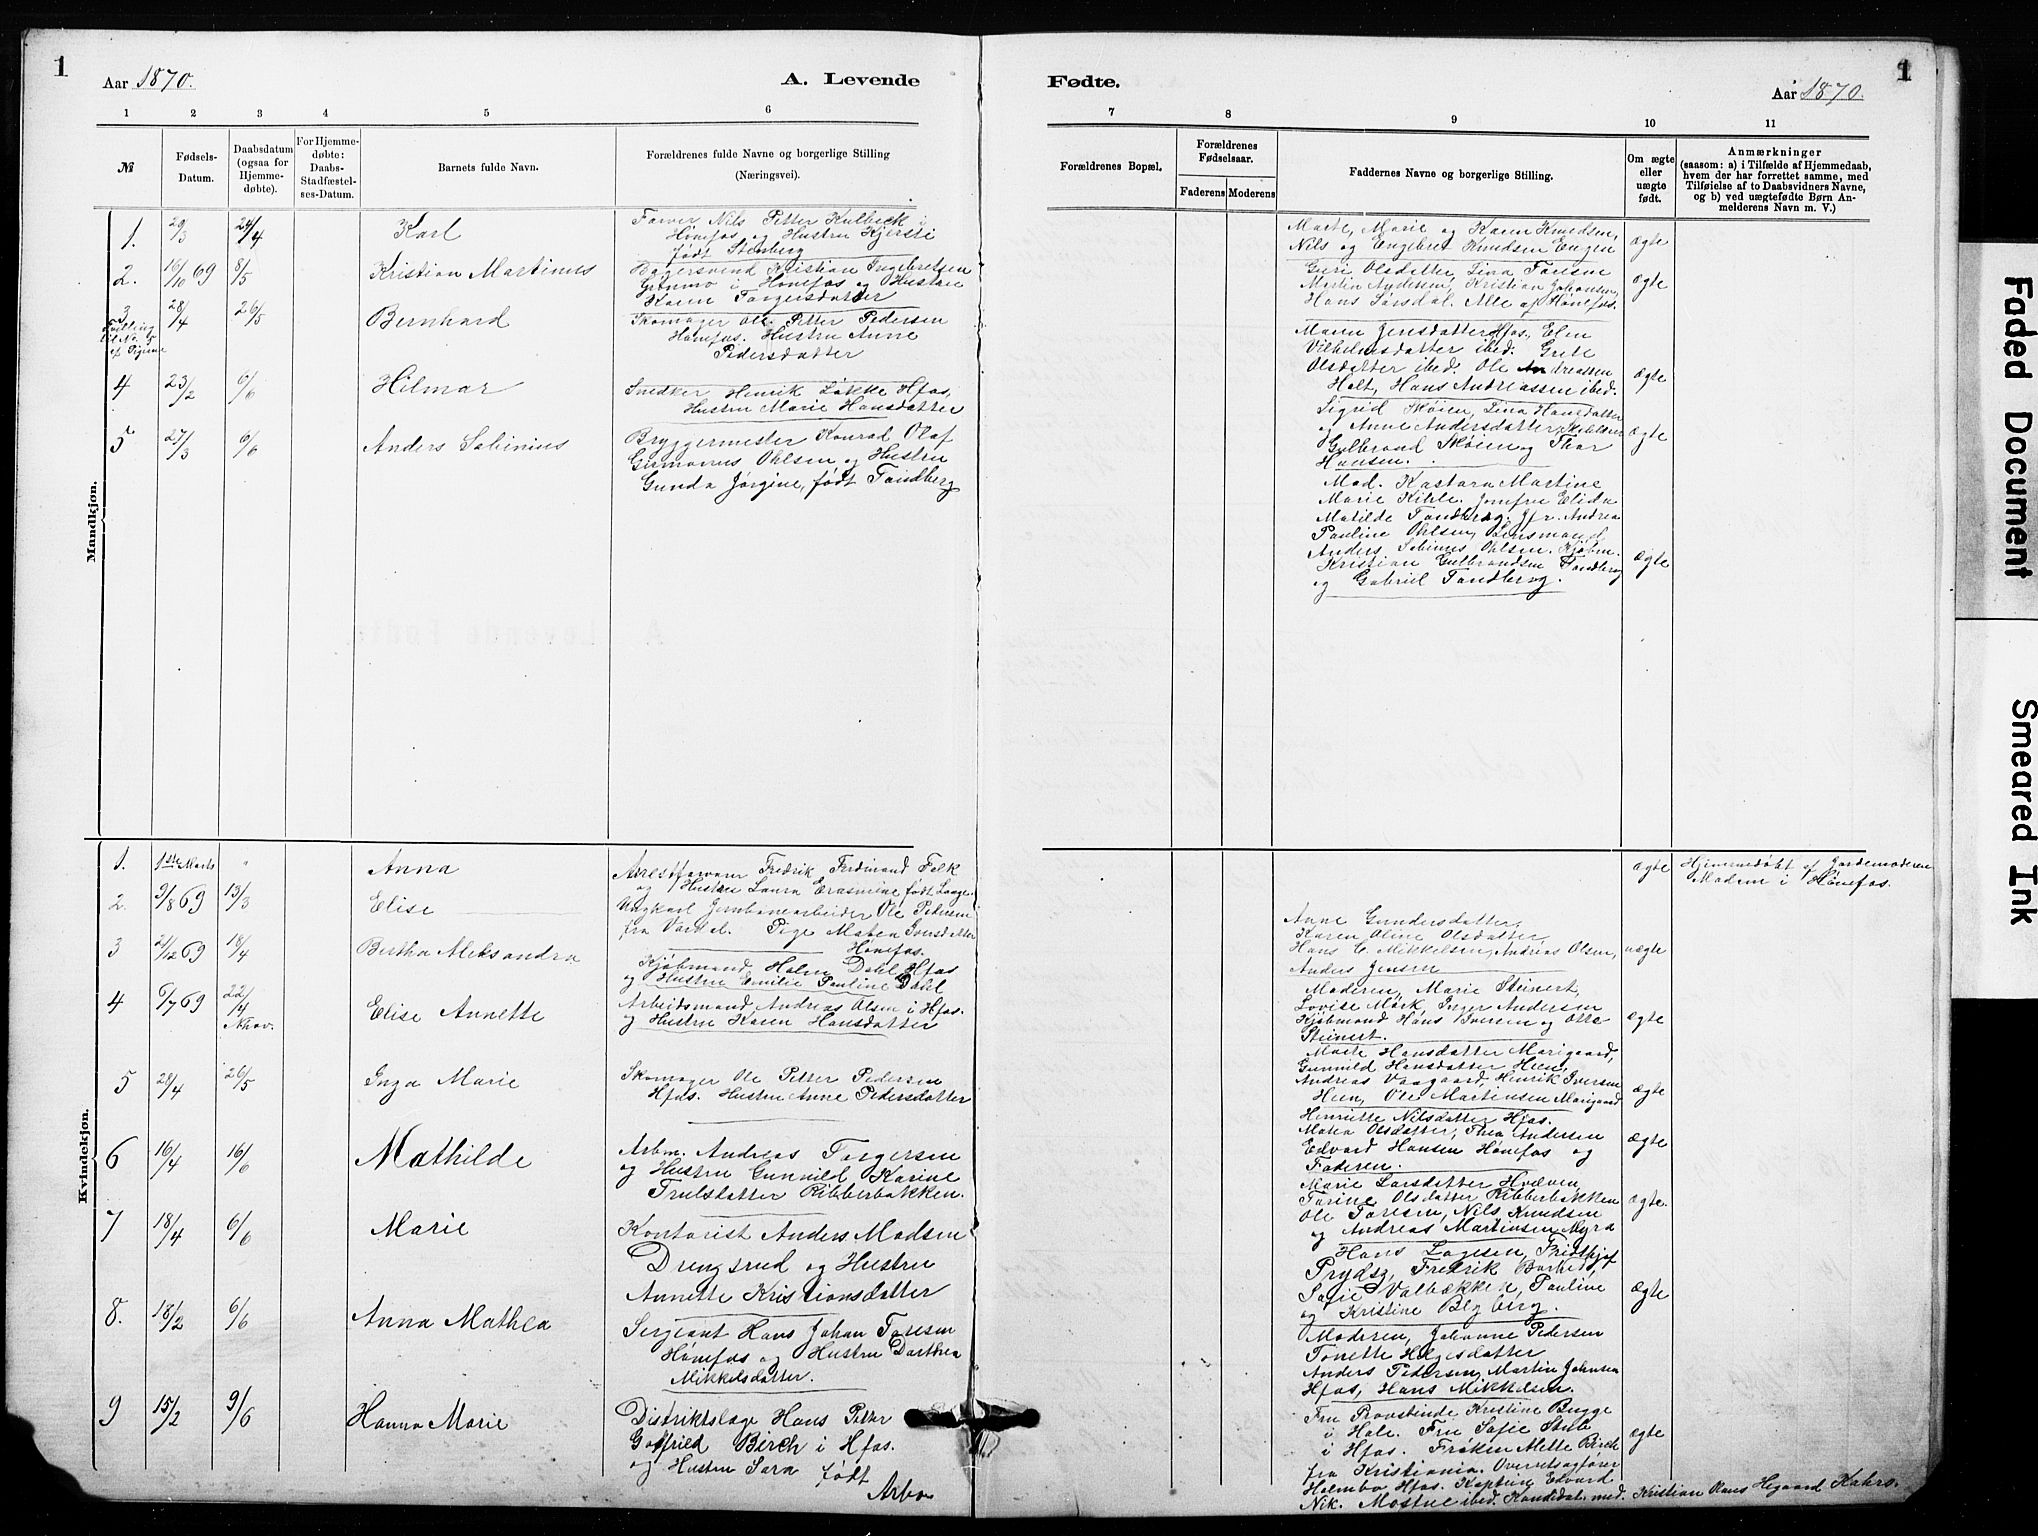 1
Aar 1870.
A. Levende
1 2 3 4 5 6
№
Fødsels-
Datum.
Daabsdatum
(ogsaa for
Hjemme-
døbte).
For Hjemme-
døbte:
Daabs-
Stadfæstel-
ses-Datum.
Barnets fulde Navn.
Forældrenes fulde Navne og borgerlige Stilling
(Næringsvei).
Mandkjøn.
1. 29/3 24/4 Karl
Farver Nils Petter Kulbeck i
Hønefos og Hustru Kjersti
født Stenberg
2. 16/10 69 8/5 Kristian Martinus
Kristian Ingebretsen
Grønmo i Hønefos og Hustru
Karen Torgersdatter
3 28/4 26/5 Bernhard
Tvilling
til No. 5
af Pigerne
Skomager Ole Petter Pedersen
Hønefos. Hustru Anne
Pedersdatter
4 23/2 6/6 Hilmar
Snedker Henrik Løkke Hfos,
Hustru Marie Hansdatter
5 27/3 6/6 Anders Sabinius
Bryggermester Konrad Olaf
Ohlsen og Hustru
Gunda Jørgine, født Tandberg
Kvindekjøn.
1. 1ste Marts " Anna
Arrestforvarer Fredrik Ferdinand Falk
og Hustru Laura Erasmine født Lange.
2. 9/8 69 13/3 Elise
Ungkarl Jernbanearbeider Ole Pedersen
fra Pige Maren Iversdatter
Hønefos.
3 21/12 69 18/4 Bertha Aleksandra
Kjøbmand Halvor Dahl Hfos
og Hustru Emilie Pauline Dahl
4 6/7 69 22/14 Elise Annette
Arbeidsmand Andreas Olsen i Hfos.
og Hustru Karen Hansdatter
5 28/4 26/5 Inga Marie
Skomager Ole Petter Pedersen
Hfos. Hustru Anne Pedersdatter
6 16/4 16/6 Mathilde
Arbm. Andreas Torgersen
og Hustru Gunhild Karine
Trulsdatter Ribberbakken.
7 18/4 6/6 Marie
Kontorist Anders Madsen
Drengsrud og Hustru
Annette Kristionsdatter
8. 18/2 6/6 Anna Mathea
Sergeant Hans Johan Toresen
Hønefos og Hustru Dorthea
Mikkelsdatter.
9 15/2 9/6 Hanna Marie
Distriktslæge Hans Petter
Gotfried Birch i Hfos.
og Hustru Sara født
Arbo
Fødte.
1
Aar 1870.
7 8 9 10 11
Forældrenes Bopæl.
Forældrenes
Fødselsaar.
Faderens Moderens
Faddernes Navne og borgerlige Stilling.
Om ægte
eller
uægte
født.
Anmærkninger
(saasom: a) i Tilfælde af Hjemmedaab,
hvem der har forrettet samme, med
Tilføielse af to Daabsvidners Navne,
og b) ved uægtefødte Børn An-
melderens Navn m. V.)
Marte, Marie og Karen Knudsen,
Nils og Engebret Knudsen Engen
ægte
Guri Olsdatter, Lina Toresen
Martin Kristian Johansen,
Hans Sørsdal. Alle af Hønefos.
ægte
Maren Jensdatter Hfos, Elen
Vilhelmsdatter ibed. Grete
Olsdatter ibed. Ole Andreassen
Holt, Hans Andreassen ibed.
ægte
Sigrid Skøien, Lina Hansdatter
og Anne Andersdatter
Gulbrand Skøien og Thor
Hansen.
ægte
Mad. Kastora Martine
Marie Kihle. Jomfru Elida
Matilde Tandberg. Jfr. Andrea
Pauline Ohlsen, Lensmand
Anders Sabinus Ohlsen. Kjøbm.
Kristian Gulbrandsen Tandberg
og Gabriel Tandberg.
ægte
ægte
Hjemmedøbt af Jordemoderen
Madsen i Hønefos.
Anne Gundersdatter,
Karen Oline Olsdatter
Hans C. Mikkelsen, Andreas Olsen,
Anders Jensen
uægte
Moderen, Marie Steinert,
Lovise Mørk, Inger Andersen
Kjøbmand Hans Iversen og Otto
Steinert.
ægte
Marte Hansdatter Marigaard,
Gunhild Hansdatter Heen,
Andreas Vaagaard, Henrik Iversen
Heen, Ole Martensen Marigaard
ægte
Henriette Nilsdatter Hfos.
Maria Olsdatter, Thea Andersen
Edvard Hansen Hønefos og
Faderen.
ægte
Marie Larsdatter Hvæven
Torine Olsdatter Ribberbakken
Ole Toresen, Nils Knudsen
og Andreas Martinsen Myra
ægte.
Hans Lagesen, Fridthjof
Prydsg, Fredrik Barhed,
Sofie Valbækken, Pauline
og Kristine Blyberg.
ægte
Moderen, Johanne Pedersen
Tonette Helgesdatter
Anders Pedersen, Martin Johnsen
Hfos, Hans Mikkelsen.
Fru Provstinde Kristine Bugge
i Hole. Fru Sofie Stub
i Hfos. Frøken Mette Birch
fra Kristiania. Overretssagfører
Holmbo Hfos. Kaptein Edvard
Nik. ibed. Kandidat med. Kristian Hans
ægte
Faded Document
Smeared Ink